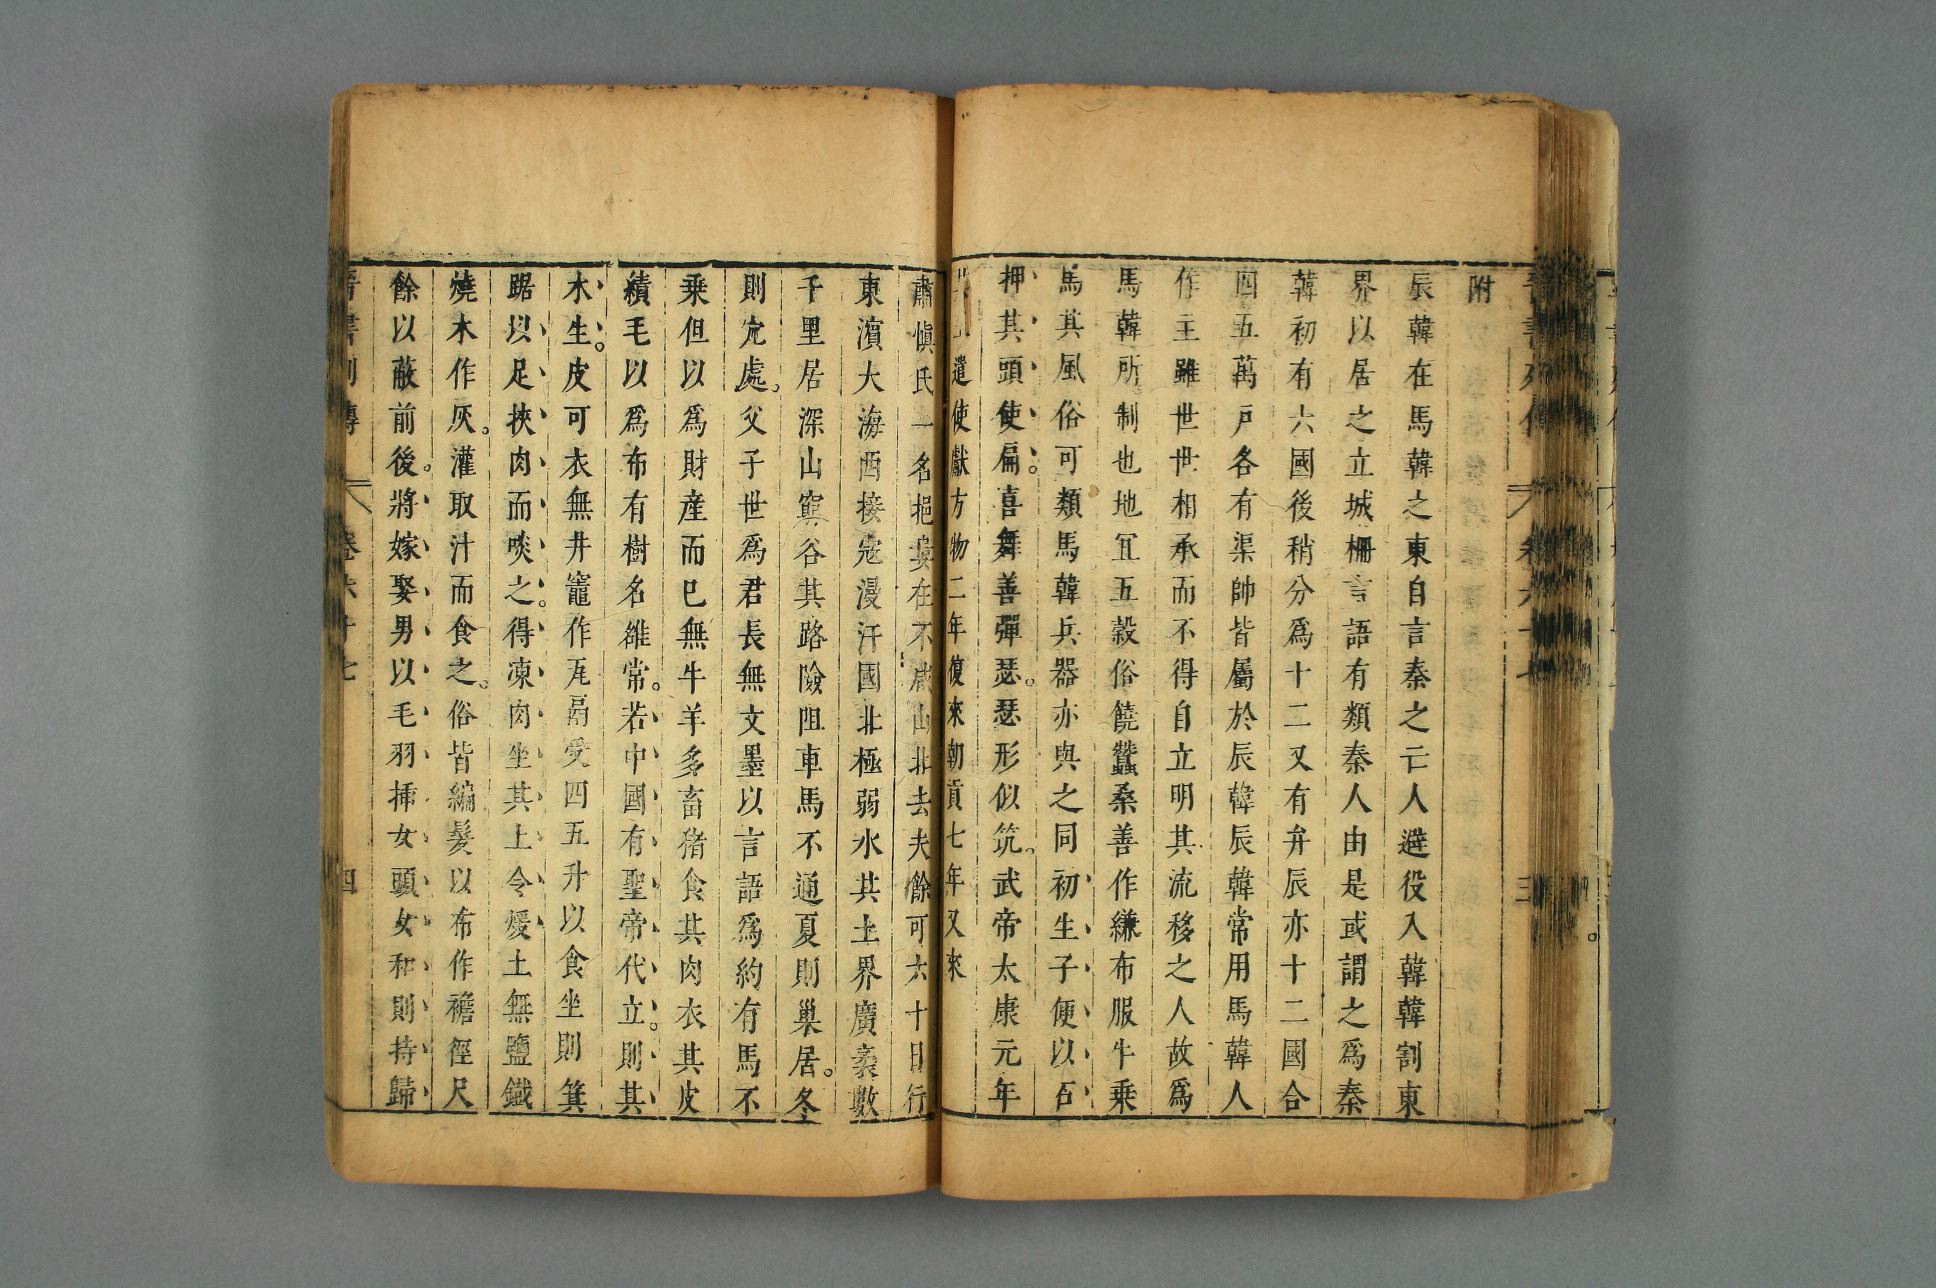 附
辰韓在馬韓之東自言秦之亡人避役入韓韓割東
界以居之立城柵言語有類秦人由是或謂之爲秦
韓初有六國後稍分爲十二又有弁辰亦十二國合
四五萬戸各有渠帥皆屬於辰韓辰韓常用馬韓人
作主雖世世相承而不得自立明其流移之人故爲
馬韓所制也地宜五穀俗饒蠶桑善作縑布服牛乗
馬其風俗可類馬韓兵器亦與之同初生子便以石
押其頭使扁。喜舞善彈瑟。瑟形似筑。武帝太康元年
其王遣使獻方物二年復來朝貢七年又來
肅愼氏一名挹婁在不咸山北去夫餘可六十日行
東濵大海西接寇漫汗國北極弱水其土界廣袤數
千里居深山窮谷其路險阻車馬不通夏則巢居。冬
則宂處。父子世爲君長無文墨以言語爲約有馬不
乗但以爲財産而已無牛羊多畜猪食其肉衣其皮
績毛以爲布有樹名雒常。若中國有聖帝代立。則其
木生。皮可衣無井竈作瓦鬲受四五升以食坐則箕
踞以足挾肉而啖之。得凍肉坐其上令煖土無鹽鐵
燒木作灰。灌取汁而食之。俗皆編髮以布作襜徑尺
餘以蔽前後。將嫁娶男以毛羽挿女頭女和則持歸
晋書列傳 卷六十七 四